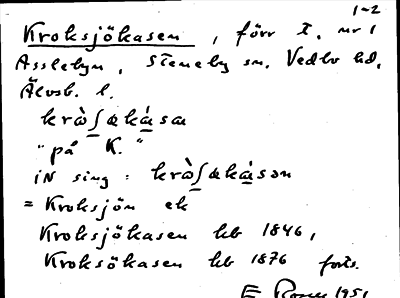 1-2
Kroksjökasen, förr t. nr 1
Asslebyn, Steneby sn. Vedbo hd,
Älvsb. l.
krὰʃakásæ
"på K."
iN sing: krὰʃakásən
= Kroksjön ek
Kroksjökasen hb 1846,
Kroksökasen hb 1876 forts.
1951